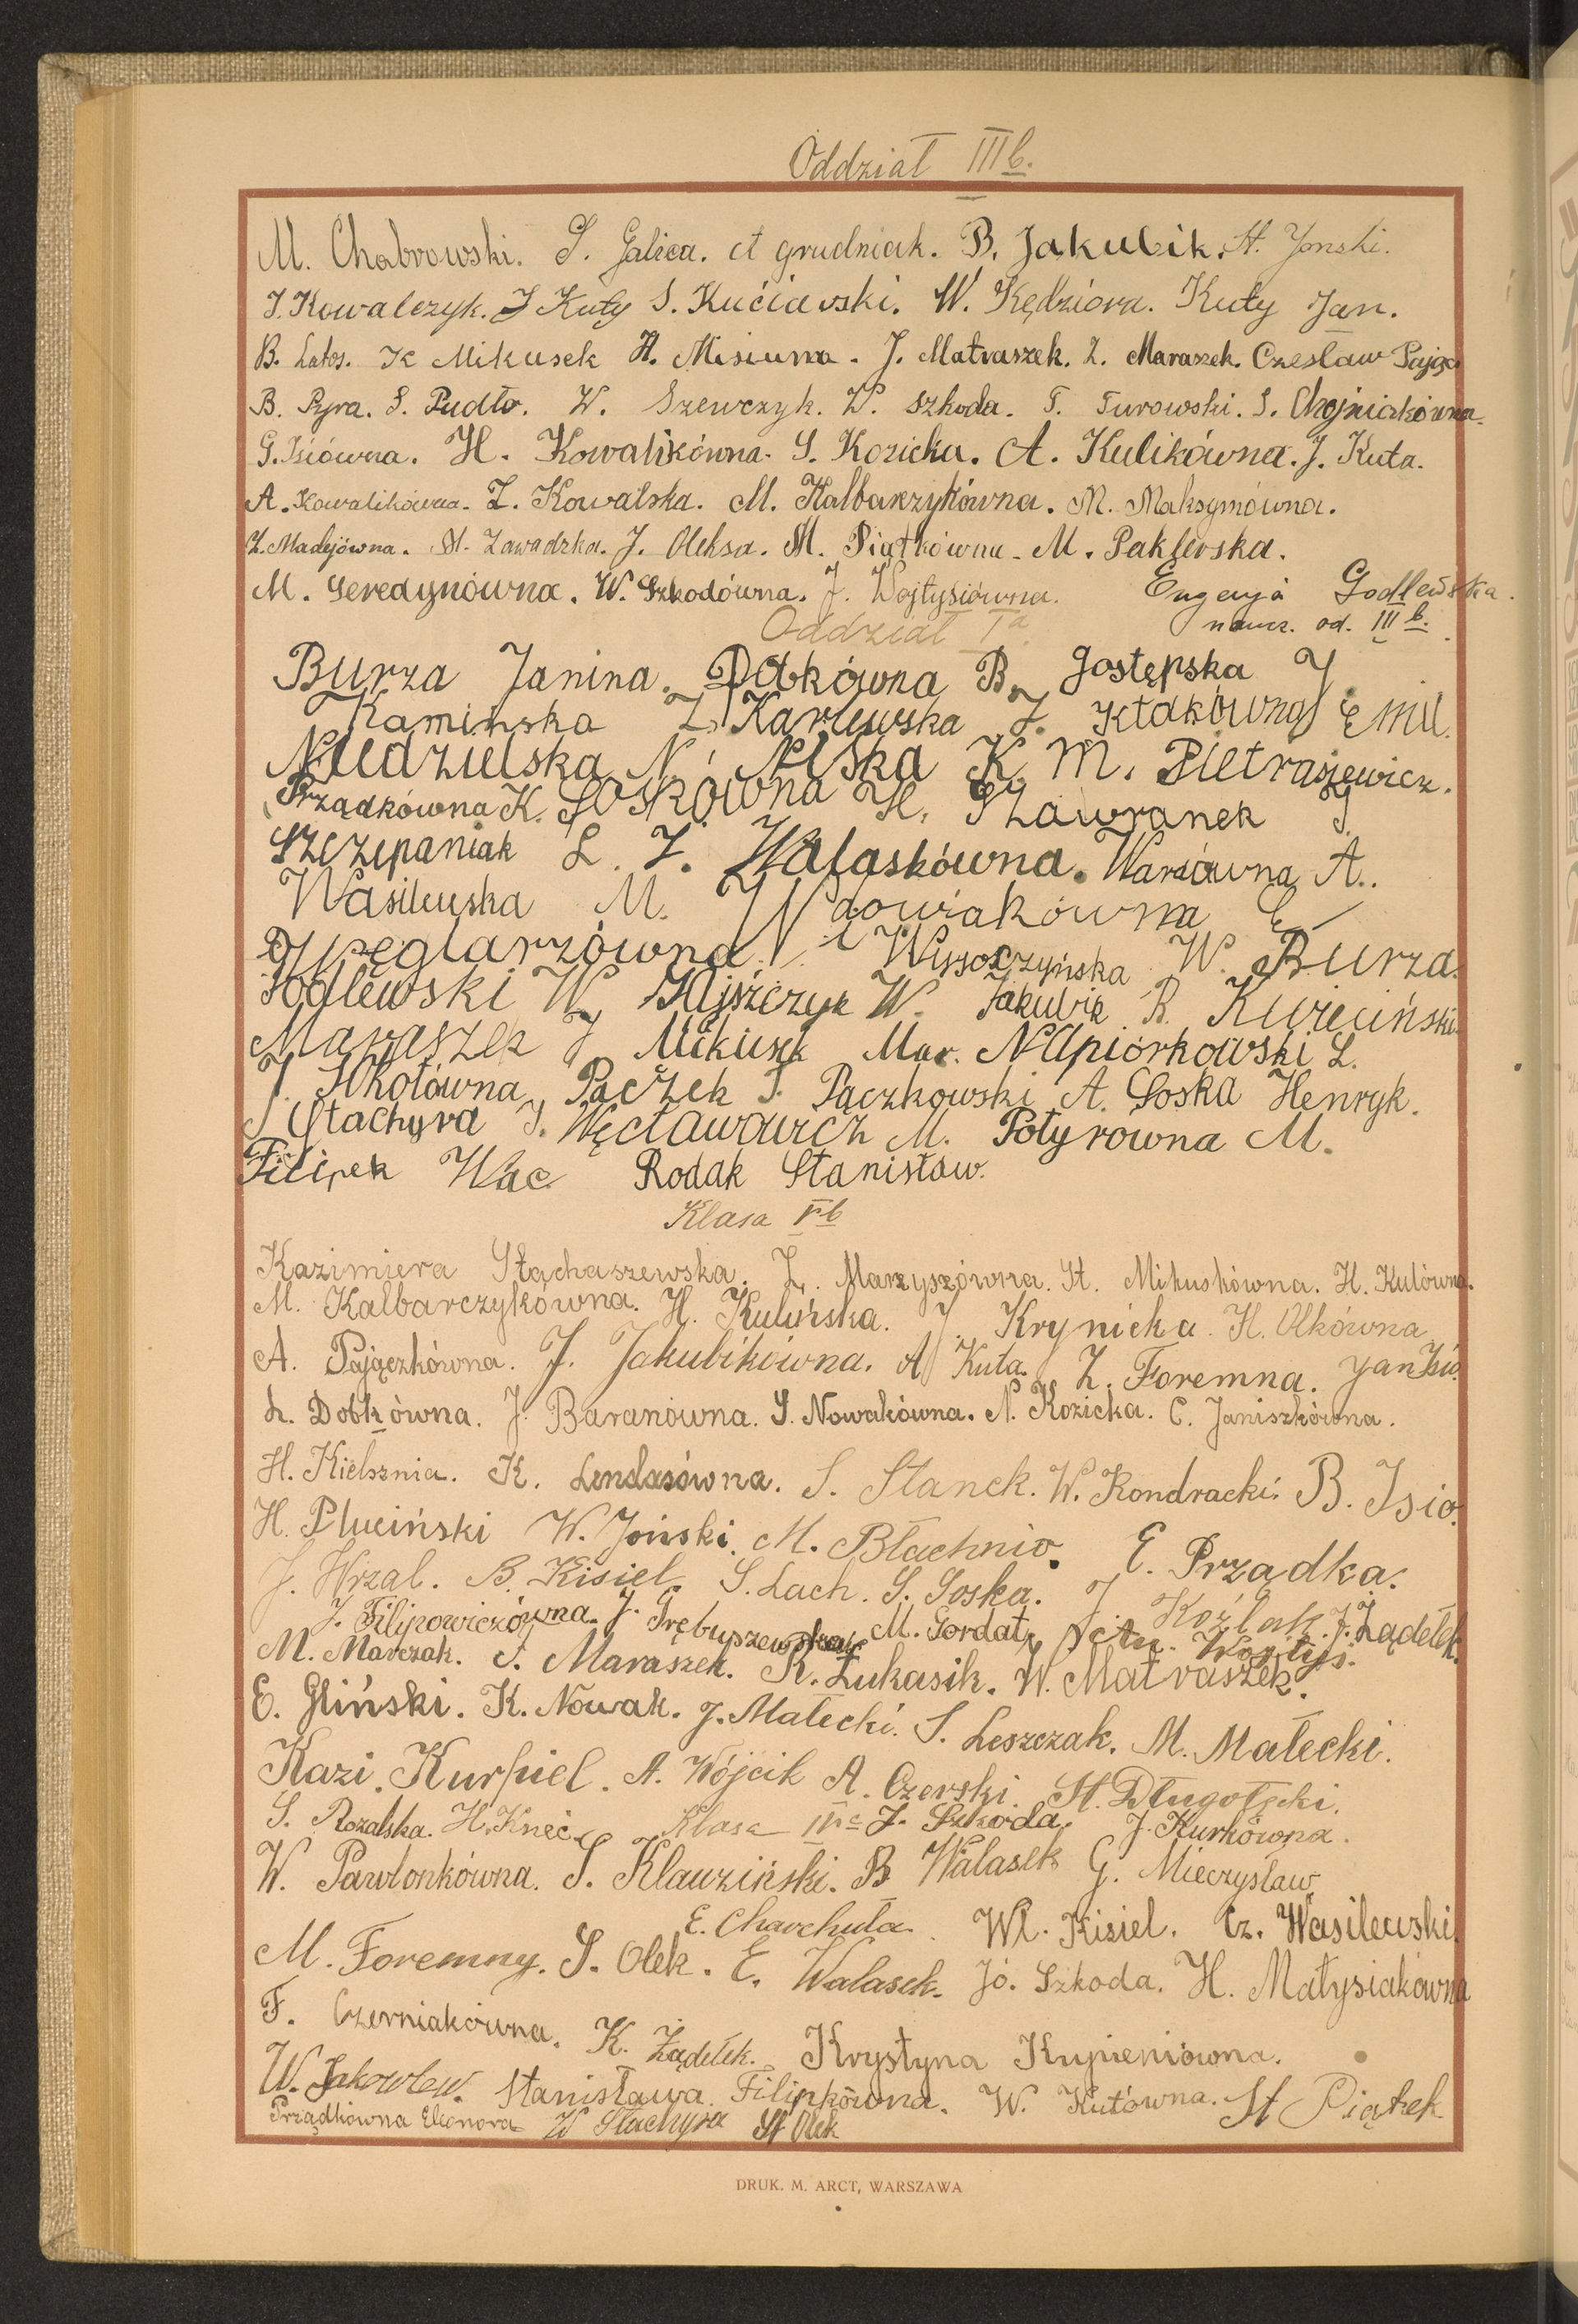 Oddział III b.
M. Chabrowski. S. Galica. A grudniak. B. Jakubik. H. Jonski.
J. Kowalczyk. J Kuty S. Kuciawski. W. Kędziora. Kuty Jan.
B. Latos. K Mikusek H. Misiuna. J. Matraszek. Z. Maraszek. Czesław Pająk
B. Pyra. S. Pudło. W. Szewczyk. W. Szkoda. T. Turowski. S. Chojniakówna
G. Isiówna. H. Kowalikówna. S. Kozicka. A. Kulikówna. J. Kuta.
A. Kowalikówna. Z. Kowalska. M. Kalbarczykówna. M. Maksymówna.
Z. Madejówna. M. Zawadzka. J. Oleksa. M. Piątkówna. M. Paklerska.
M. Seredynówna. W. Szkodówna. J. Wojtysiówna. Eugenja Godlewska.
naucz. od. III b.
Oddział I a
Burza Janina. Dobkówna B. Gostępska J.
Kamińska Z. Karlewska Z. Kłakówna Emil.
Niedzielska N. Niska K. M. Pietrasiewicz.
Prządkówna K. Soskówna H. Skawranek J.
Szczepaniak L. Z. Walaskówna. Warsówna A.
Wasilewska M. Wdowiakówna E
Węglarzówna Wysoczyńska W. Burza.
Godlewski W. Gajszczyk W. Jakubik R. Kurciński
Maraszek J Mikusek Mar. Napiórkowski L.
J. Sokołówna Pączek T. Pączkowski A. Soska Henryk.
Stachyra J. Węcławowicz M. Potyrowna M.
Filipek Wac Rodak Stanisław.
Klasa V b
Kazimiera Stąchaszewska. Z. Marzyszówna. St. Mikuskówna. H. Kulówna.
M. Kalbarczykówna. H. Kulińska. J. Krynicka. H. Olkówna
A. Pajączkówna. J. Jakubikówna. A Kuta Z. Foremna. Jan Isio.
L. Dobkówna. J. Baranówna. S. Nowakówna. N. Kozicka. C. Janiszkówna.
H. Kielsznia. K. Lendasówna. S. Stanek. W. Kondracki. B. Isio.
H. Pluciński W. Joński. M. Błachnio. E. Prządka.
J. Wrzal. B. Kisiel. S. Lach. S. Soska. J Koźlak. J. Żądełek.
J. Filipowiczówna. J. Trębuszewska M. Gordat An. Wojtyś.
M. Marczak. S. Maraszek. R. Łukasik. W. Matraszek.
E. Gliński. K. Nowak. J. Małecki. S. Leszczak. M. Małecki.
Kazi. Kurpiel. A. Wójcik A. Czerski. St. Długołęcki.
S. Rozalska. H. Kneć. Klasa IV c J. Szkoda. J. Kurkówna.
W. Pawlonkówna. S. Klauziński. B Walasek G. Mieczysław
E. Charchuła. Wł. Kisiel. Cz. Wasilewski.
M. Foremny. S. Olek. E. Walasek. Jó. Szkoda. H. Małysiakówna
F. Czerniakówna. K. Żądełek. Krystyna Kupieniówna.
W. Jakowlew. Stanisława Filipkówna. W. Kutówna. St Piątek
Prządkówna Eleonora W Stachyra St Olek
DRUK. M. ARCT, WARSZAWA